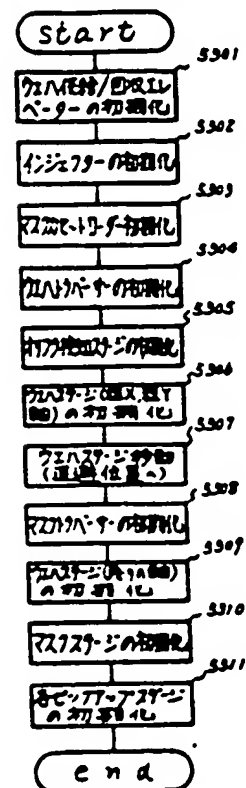 start
S301
ウェハ供給/回収エレ
ベーターの初期化
S302
インジェクターの初期化
S303
マスクカセットローダー初期化
S304
ウェハトラバーサーの初期化
S305
オリフラ検知ステージの初期化
S306
ウェハステージ(粗X,粗Y
軸)の初期化
S307
ウェハステージ
(退避位置へ)
S308
マスクトラバーサーの初期化
S309
ウェハステージ
の初期化
S310
マスクステージの初期化
S311
各ピックアップステージ
の初期化
end